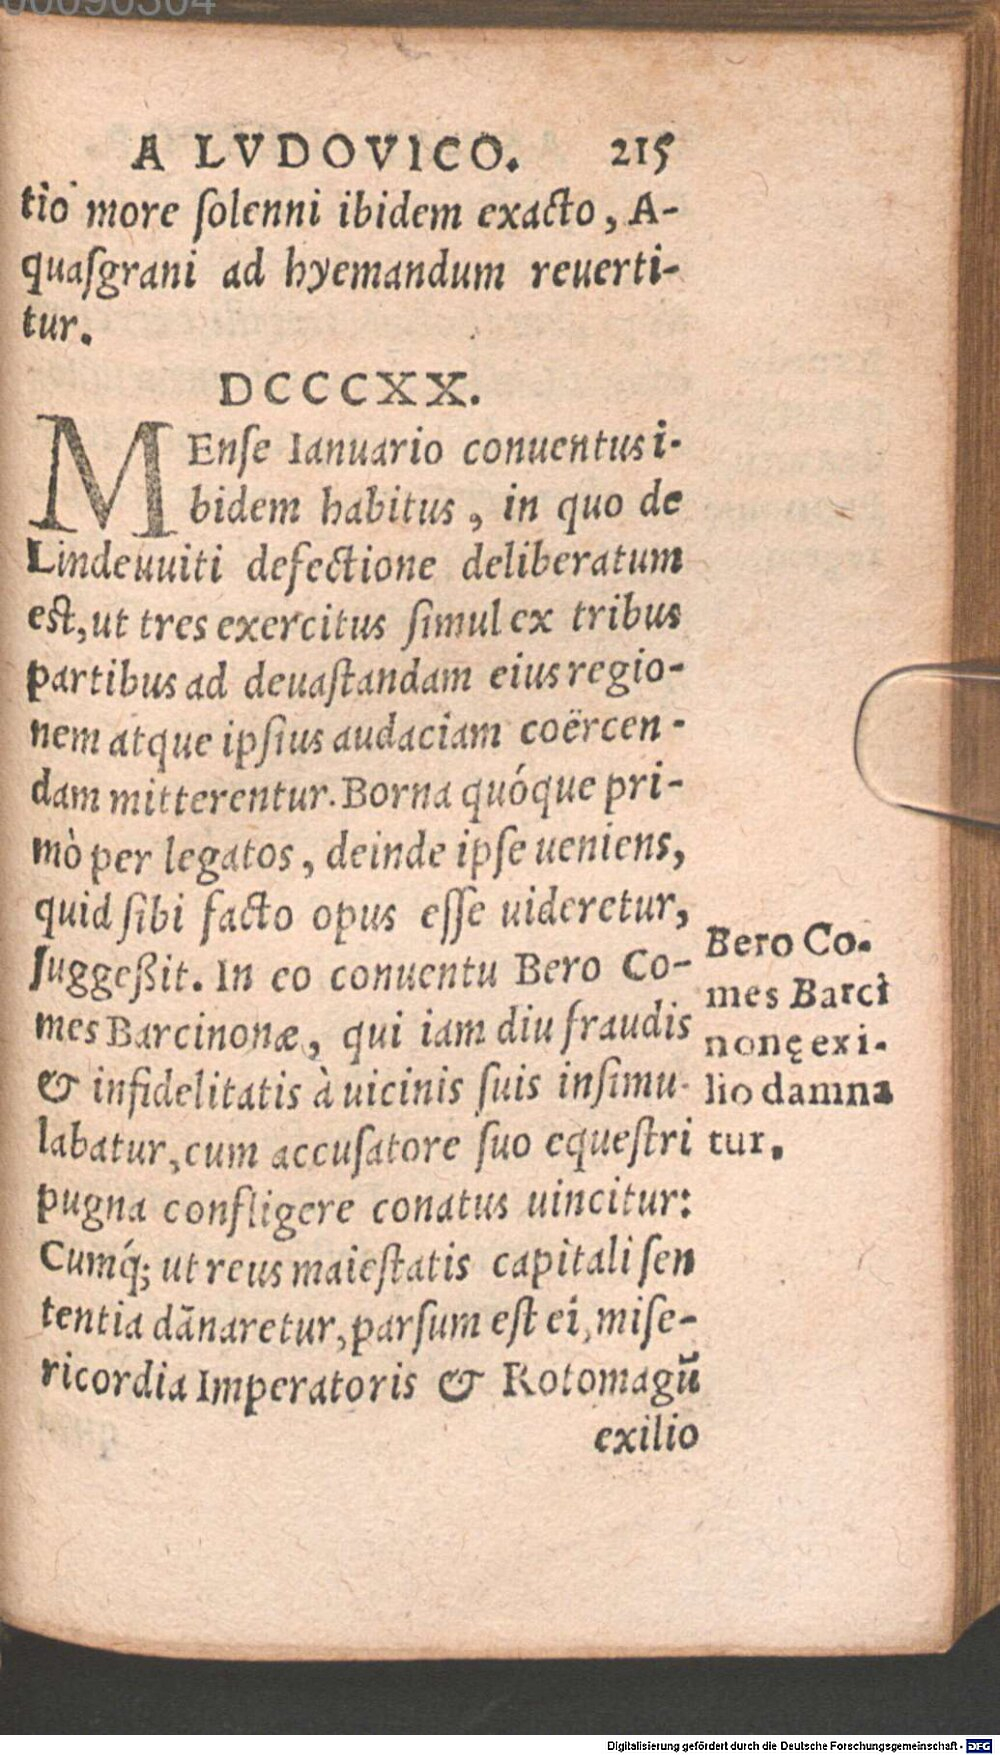 A LVDOVICO. 215
tio more ſolenni ibidem exacto, A-
quaſgrani ad hyemandum reuerti-
tur.
DCCCXX.
MEnſe Ianuario conuentus i-
bidem habitus, in quo de
Lindeuuiti defectione deliberatum
eſt, ut tres exercitus ſimul ex tribus
partibus ad deuaſtandam eius regio-
nem atque ipſius audaciam coërcen-
dam mitterentur. Borna quóque pri-
mò per legatos, deinde ipſe ueniens,
quid ſibi facto opus eſſe uideretur,
ſuggeßit. In eo conuentu Bero Co-
mes Barcinonæ, qui iam diu fraudis
& infidelitatis à uicinis ſuis inſimu-
labatur, cum accuſatore ſuo equeſtri
pugna confligere conatus uincitur:
Cumq́; ut reus maieſtatis capitali ſen
tentia dānaretur, parſum eſt ei, miſe-
ricordia Imperatoris & Rotomagū
exilio
Bero Co-
mes Barci
nonę exi-
lio damna
tur.
Digitalisierung gefördert durch die Deutsche Forschungsgemeinschaft - DFG